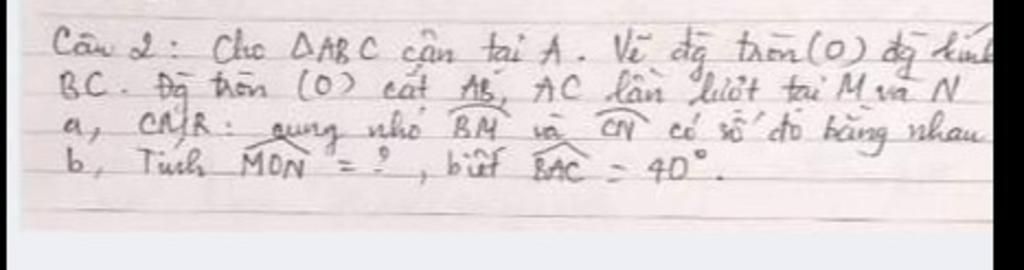 Câu 2: Cho ΔABC cân tại A. Vẽ đg tròn (O) đg kính
BC. Đg tròn (O) cắt AB, AC lần lượt tại M và N
a, CMR: cung nhỏ BM và CN có số đo bằng nhau
b, Tính MON = ?, biết BAC = 40°.